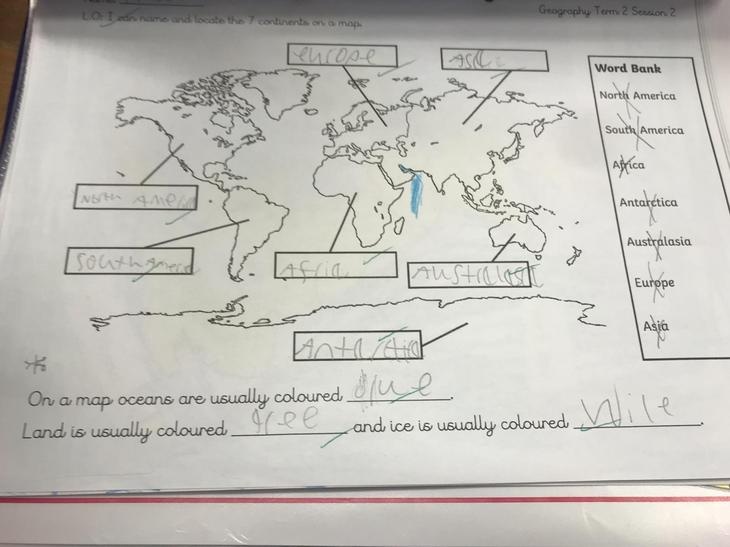 Geography Term 2 Session 2
L.O: I can name and locate the 7 continents on a map.
europe
Asi
Word Bank
North America
South America
Africa
Antarctica
Australasia
Europe
Asia
North America
South Americ
Africa
Australasi
Antarctica
On a map oceans are usually coloured blue.
Land is usually coloured gree and ice is usually coloured Wile.